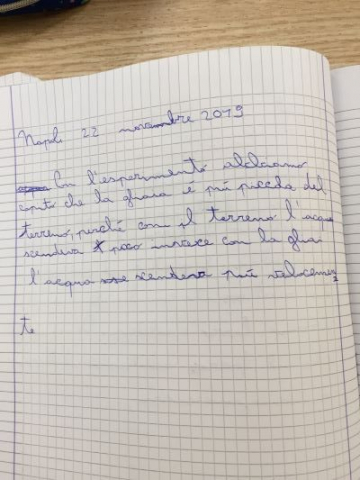 Napoli 22 novembre 2019
Con l'esperimento abbiamo
capito che la ghiaia è più piccola del
terreno, perché con il terreno l'acqua
scendeva poco invece con la ghiai
l'acqua scendeva più velocemen
te